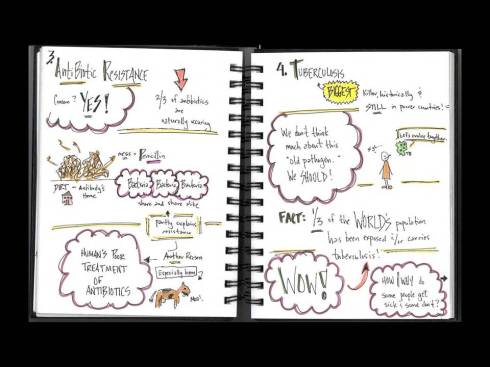 3.
AntiBiotic Resistance
Concern? YES!
2/3 of antibiotics
are
naturally occurring
- Penicillin
DIRT - Antibody's
home
Bacteria Bacteria Bacteria
share and share alike
Partly explains
resistance
Another Reason
Especially here!
HUMAN'S POOR
TREATMENT
OF
ANTIBIOTICS
Moo!
4. Tuberculosis
BIGGEST Killer, historically &
STILL in poorer countries!
We don't think
much about this
"old pathogen."
We SHOULD!
Let's evolve together.
FACT: 1/3 of the WORLD'S population
has been exposed &/or carries
tuberculosis!
WOW!
HOW/WHY do
some people get
sick & some don't?